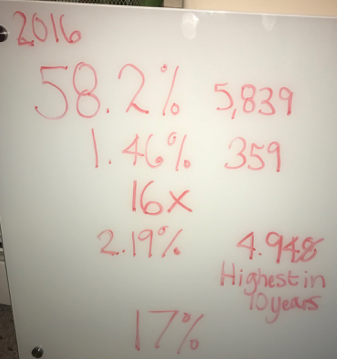 2016
58.2% 5,839
1.46% 359
16x
2.19% 4.948
Highest in
10 years
17%